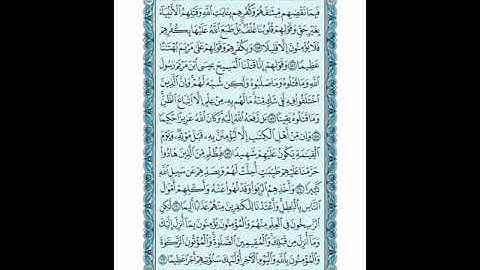 فَبِمَا نَقْضِهِم مِّيثَاقَهُمْ وَكُفْرِهِم بِآيَاتِ اللَّهِ وَقَتْلِهِمُ الْأَنبِيَاءَ
بِغَيْرِ حَقٍّ وَقَوْلِهِمْ قُلُوبُنَا غُلْفٌ بَلْ طَبَعَ اللَّهُ عَلَيْهَا بِكُفْرِهِمْ
فَلَا يُؤْمِنُونَ إِلَّا قَلِيلًا ١٥٥ وَبِكُفْرِهِمْ وَقَوْلِهِمْ عَلَىٰ مَرْيَمَ بُهْتَانًا
عَظِيمًا ١٥٦ وَقَوْلِهِمْ إِنَّا قَتَلْنَا الْمَسِيحَ عِيسَى ابْنَ مَرْيَمَ رَسُولَ
اللَّهِ وَمَا قَتَلُوهُ وَمَا صَلَبُوهُ وَلَٰكِن شُبِّهَ لَهُمْ وَإِنَّ الَّذِينَ
اخْتَلَفُوا فِيهِ لَفِي شَكٍّ مِّنْهُ مَا لَهُم بِهِ مِنْ عِلْمٍ إِلَّا اتِّبَاعَ الظَّنِّ
وَمَا قَتَلُوهُ يَقِينًا ١٥٧ بَل رَّفَعَهُ اللَّهُ إِلَيْهِ وَكَانَ اللَّهُ عَزِيزًا حَكِيمًا
١٥٨ وَإِن مِّنْ أَهْلِ الْكِتَابِ إِلَّا لَيُؤْمِنَنَّ بِهِ قَبْلَ مَوْتِهِ وَيَوْمَ
الْقِيَامَةِ يَكُونُ عَلَيْهِمْ شَهِيدًا ١٥٩ فَبِظُلْمٍ مِّنَ الَّذِينَ هَادُوا
حَرَّمْنَا عَلَيْهِمْ طَيِّبَاتٍ أُحِلَّتْ لَهُمْ وَبِصَدِّهِمْ عَن سَبِيلِ اللَّهِ
كَثِيرًا ١٦٠ وَأَخْذِهِمُ الرِّبَا وَقَدْ نُهُوا عَنْهُ وَأَكْلِهِمْ أَمْوَالَ
النَّاسِ بِالْبَاطِلِ وَأَعْتَدْنَا لِلْكَافِرِينَ مِنْهُمْ عَذَابًا أَلِيمًا ١٦١ لَّٰكِنِ
الرَّاسِخُونَ فِي الْعِلْمِ مِنْهُمْ وَالْمُؤْمِنُونَ يُؤْمِنُونَ بِمَا أُنزِلَ إِلَيْكَ
وَمَا أُنزِلَ مِن قَبْلِكَ وَالْمُقِيمِينَ الصَّلَاةَ وَالْمُؤْتُونَ الزَّكَاةَ
وَالْمُؤْمِنُونَ بِاللَّهِ وَالْيَوْمِ الْآخِرِ أُولَٰئِكَ سَنُؤْتِيهِمْ أَجْرًا عَظِيمًا ١٦٢